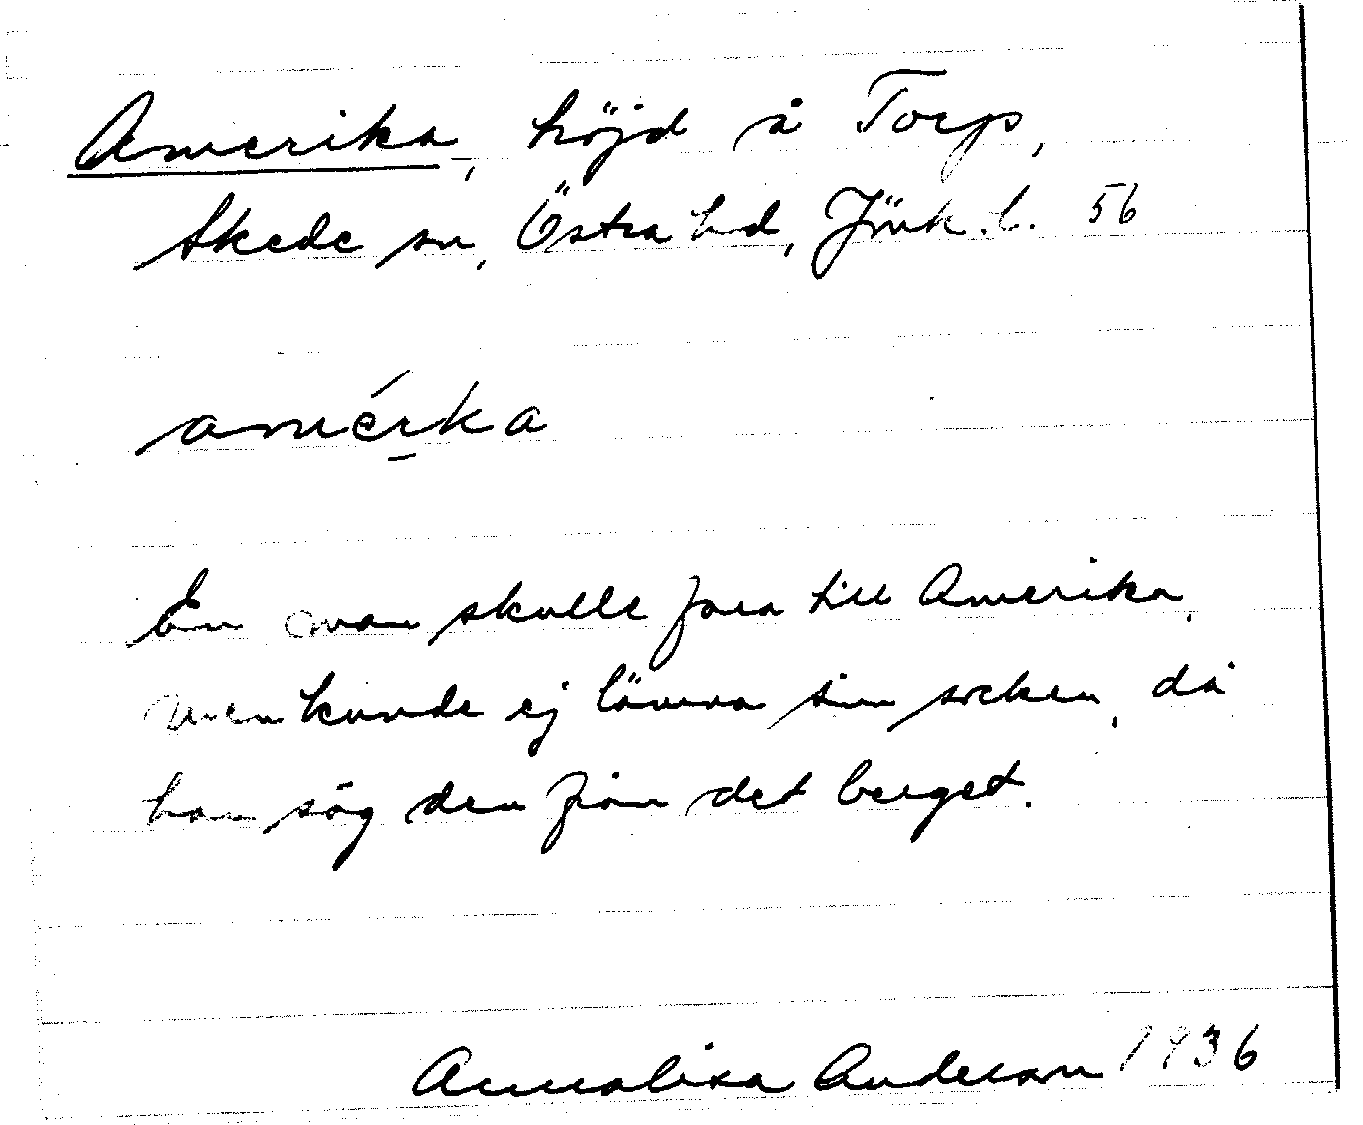 Amerika, höjd å Torp,
Skede sn, Östra hd, Jönk. l. 56
amérka
En man skulle fara till Amerika,
men kunde ej lämna sin socken, då
han såg den från det berget.
Annalisa Anderson 1936